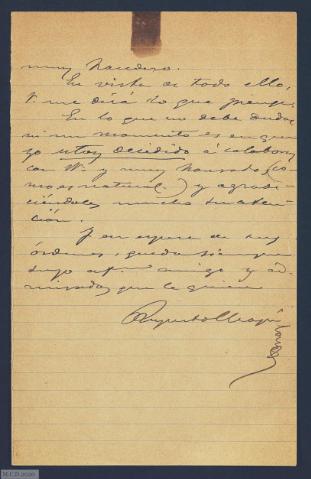 muy hacedero.
En vista de todo ello,
V. me dirá lo que
En lo que no debe dudar
ni un momento es en que
yo estoy decidido á colaborar
con Vs. y muy honrado (co-
mo es natural) y agrade-
ciéndoles mucho su aten-
ción.
Y en espera de sus
órdenes, queda siempre
suyo af.mo amigo y ad-
mirador que le quiere
Augusto
M.C.D. 2020